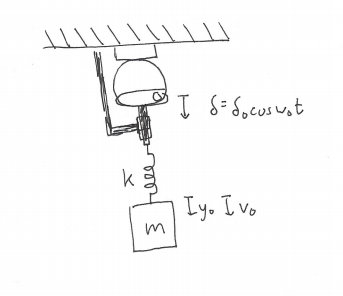 δ = δ₀ cos ω₀t
k
m
y₀ v₀